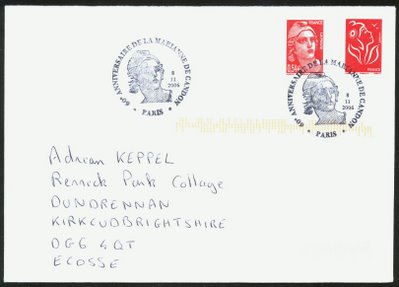 60e ANNIVERSAIRE DE LA MARIANNE DE GANDON
8
11
2006
* PARIS *
FRANCE
FRANCE
60e ANNIVERSAIRE DE LA MARIANNE DE GANDON
8
11
2006
* PARIS *
Adrian KEPPEL
Rennick Park Cottage
DUNDRENNAN
KIRKCUDBRIGHTSHIRE
DG6 4QT
ECOSSE